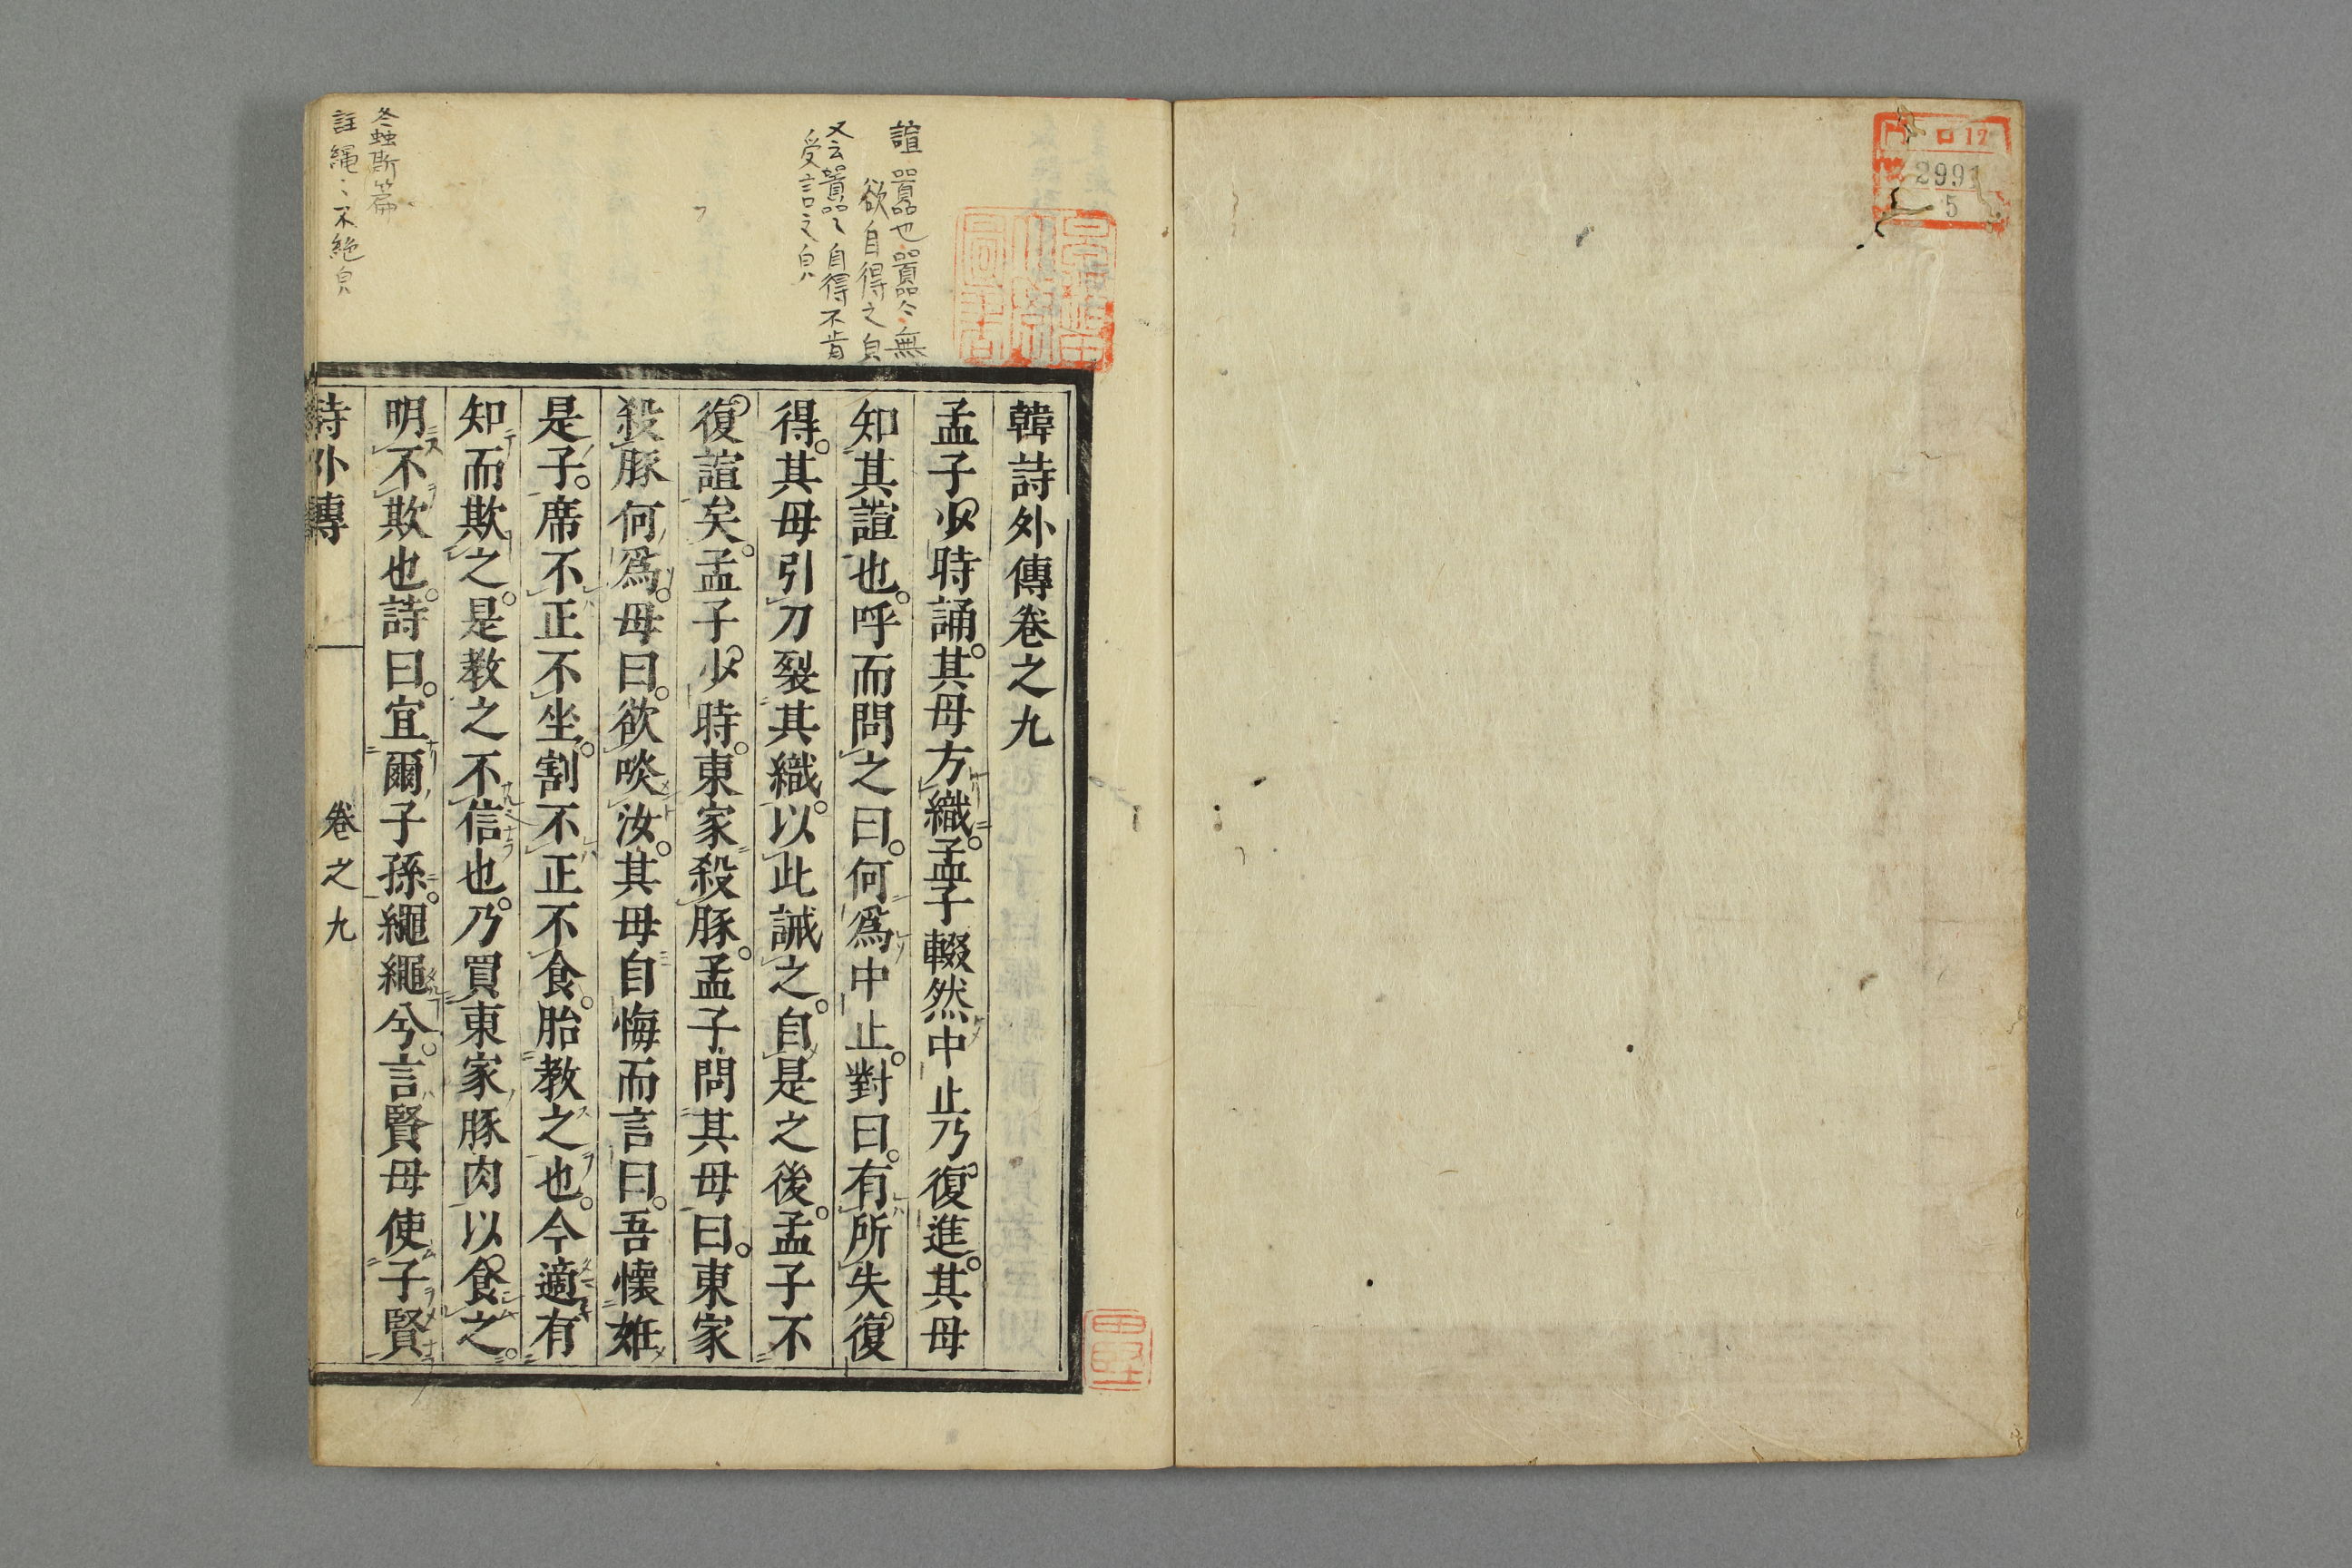 口 12
2991
5
諠 囂也囂々無
欲自得之皃
又云囂々自得不肯
受言之皃
冬螽斯篇
註 縄〻不絶皃
韓詩外傳卷之九
孟子少時誦。其母方織。孟子輟然中止乃復進。其母
知其諠也。呼而問之曰。何爲中止。對曰。有所失復
得。其母引刀裂其織。以此誡之。自是之後。孟子不
復諠矣。孟子少時。東家殺豚。孟子問其母曰。東家
殺豚何爲。母曰。欲啖汝。其母自悔而言曰。吾懷姙
是子。席不正不坐。割不正不食。胎教之也。今適有
知而欺之。是教之不信也。乃買東家豚肉以食之。
明不欺也。詩曰。宜爾子孫。繩繩兮。言賢母使子賢
詩外傳 卷之九